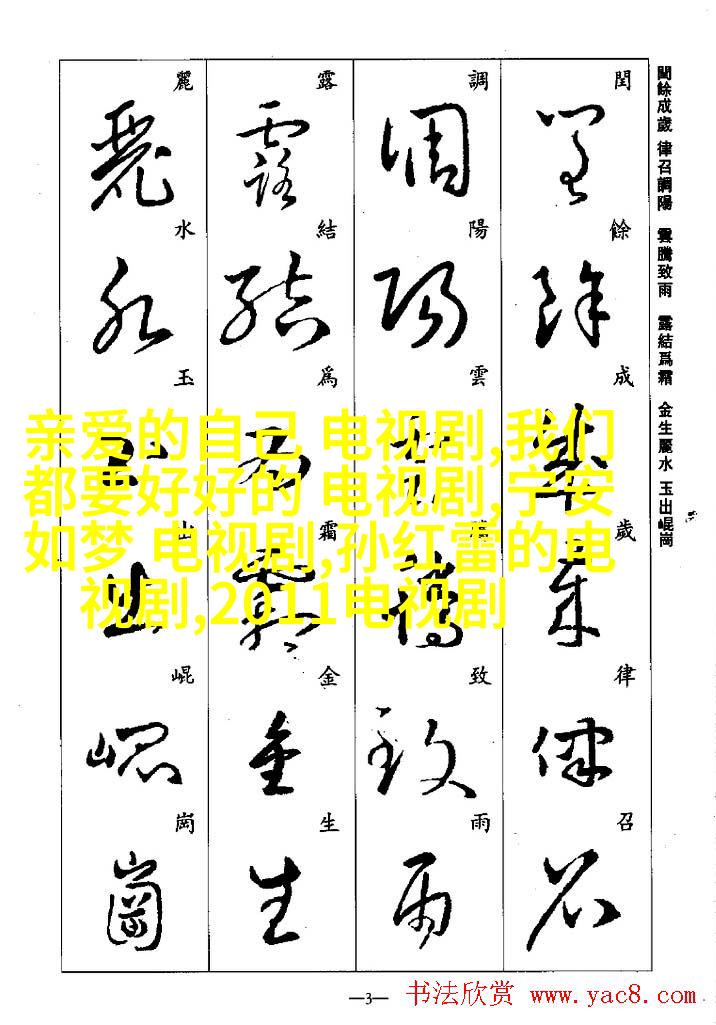 閏餘成歲 律召調陽 雲騰致雨 露結爲霜 金生麗水 玉出崐崗
閏
餘
成
歲
律
召
調
陽
雲
騰
致
雨
露
結
爲
霜
金
生
麗
水
玉
山
崐
崗
亲爱的自己 电视剧,我们
都要好好的 电视剧,宁安
如梦 电视剧,孙红雷的电
视剧,2011电视剧
—3—
书法欣赏 www.yac8.com